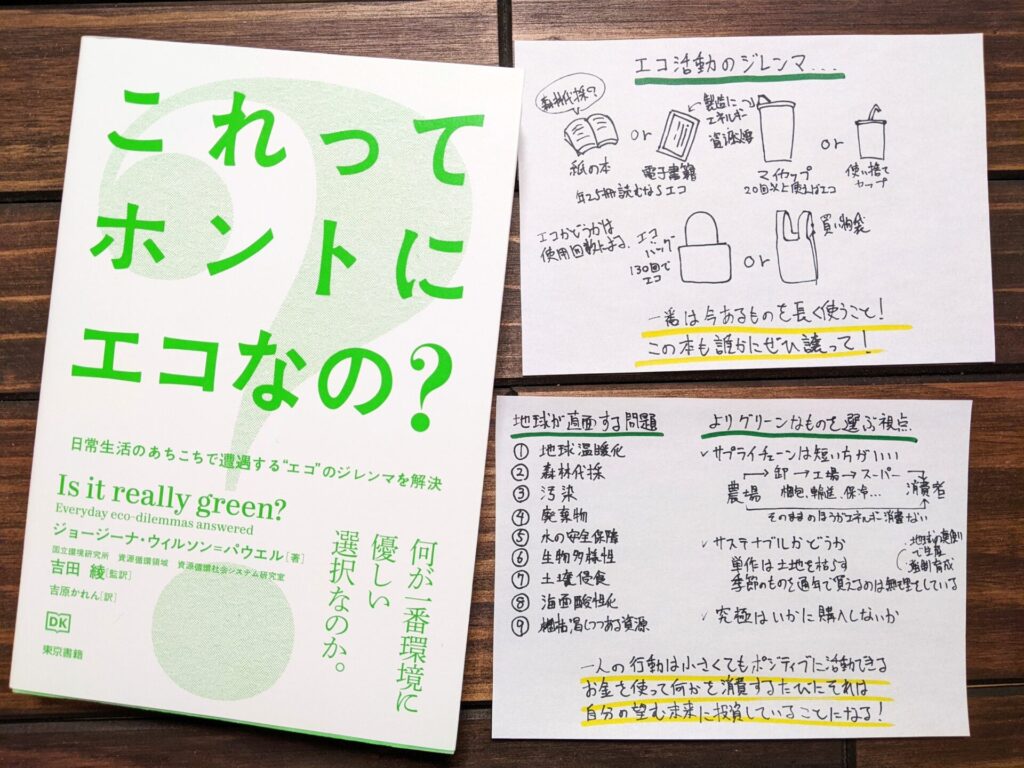 これって
ホントに
エコなの?
日常生活のあちこちで遭遇する“エコ”のジレンマを解決
Is it really green?
Everyday eco-dilemmas answered
ジョージーナ・ウィルソン=パウエル[著]
国立環境研究所 資源循環領域 資源循環社会システム研究室
吉田 綾[監訳]
吉原かれん[訳]
DK
東京書籍
何が一番環境に
優しい
選択なのか。
エコ活動のジレンマ...
森林代採?
紙の本
or
電子書籍
年25冊読むならエコ
製造に
エネルギー
資源必要
マイカップ
20回以上使えばエコ
or
使い捨て
カップ
エコかどうかは
使用回数による、
エコ
バッグ
130回で
エコ
or
買い物袋
一番は今あるものを長く使うこと!
この本も誰かにぜひ譲って!
地球が直面する問題
① 地球温暖化
② 森林代採
③ 汚染
④ 廃棄物
⑤ 水の安全保障
⑥ 生物多様性
⑦ 土壌侵食
⑧ 海面酸性化
⑨ 枯渇しつつある資源
よりグリーンなものを選ぶ視点
✓ サプライチェーンは短い方がいい
農場→卸→工場→スーパー→消費者
梱包、輸送、保冷...
そのままのほうがエネルギー消費ない
✓ サステナブルかどうか
単作は土地を枯らす
季節のものを通年で買えるのは無理をしている
地球の裏側
で生産
強制育成
✓ 究極はいかに購入しないか
一人の行動は小さくてもポジティブに活動できる
お金を使って何かを消費するたびにそれは
自分の望む未来に投資していることになる!